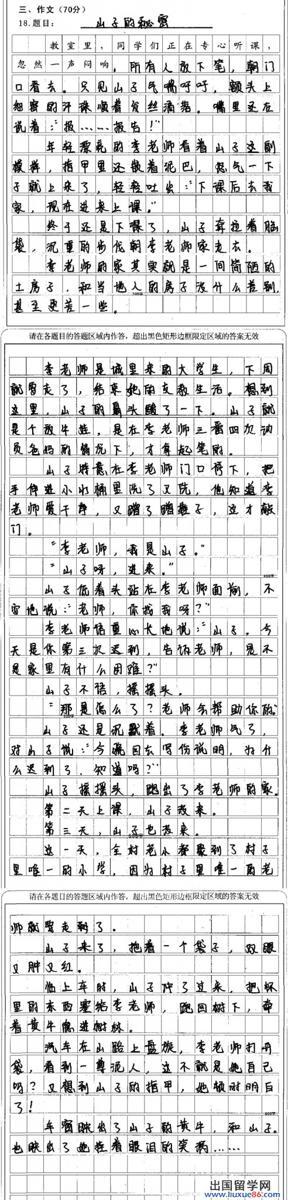 三、作文（70分）
18.题目： 山子的秘密
教室里，同学们正在专心听课，
忽然一声闷响。所有人放下笔，朝门
口看去。只见山子气喘呼呼，额头上
细密的汗珠顺着发丝滴落。嘴里还在
说着："报……报告！"
年轻漂亮的李老师看着山子这副
模样，指甲里还嵌着泥巴，怒气一下
子就上来了，轻轻吐出："下课后去我
家，现在进来上课。"
终于还是下课了，山子耷拉着脑
袋，沉重的步伐朝李老师家走去。
李老师的家其实就是一间简陋的
土房子，和当地人的房子没什么差别
甚至更差一些。
请在各题目的答题区域内作答，超出黑色矩形边框限定区域的答案无效
李老师是城里来的大学生，下周
就要走了，结束她的支教生活。想到
这里，山子的鼻头酸了一下。山子就
是个放牛娃，是在李老师三番四次劝
员爸妈的情况下，才拿起笔的。
山子特意在李老师门口停下，把
手伸进小水桶里洗了又洗，他知道李
老师爱干净，又蹭了蹭鞋子，这才敲
门。
"李老师，我是山子。"
"山子呀，进来。"
山子低着头站在李老师面前，不
安地说："老师，你找我呀？"
李老师语重心长地说："山子。今
天是你第三次迟到，告诉老师，是不
是家里有什么困难？"
山子不语，摇摇头。
"那是怎么了？老师会帮助你的。
山子还是沉默着。李老师气了，
对山子说："今晚回去写份说明，为什
么迟到了，知道吗？"
山子摇摇头，跑出了李老师的家。
第二天上课，山子没来。
第三天，山子也没来。
这一天，全村老小聚集到了村子
里唯一的小学，因为村子里唯一的老
请在各题目的答题区域内作答，超出黑色矩形边框限定区域的答案无效
师就要走到了。
山子来了，抱着一个袋子，双眼
又肿又红。
临上车时，山子冲了过来，把怀
里的东西塞给李老师，跑回树下，牵
着黄牛偏进树林。
汽车在山路上盘旋，李老师打开
袋，看到一尊泥人，这不就是她自己
吗？又想到山子的指甲，她顿时明白
了！
车窗映出了山子的黄牛，和山子。
也映出了她挂着眼泪的笑窝……
出国留学网
www.liuxue86.com